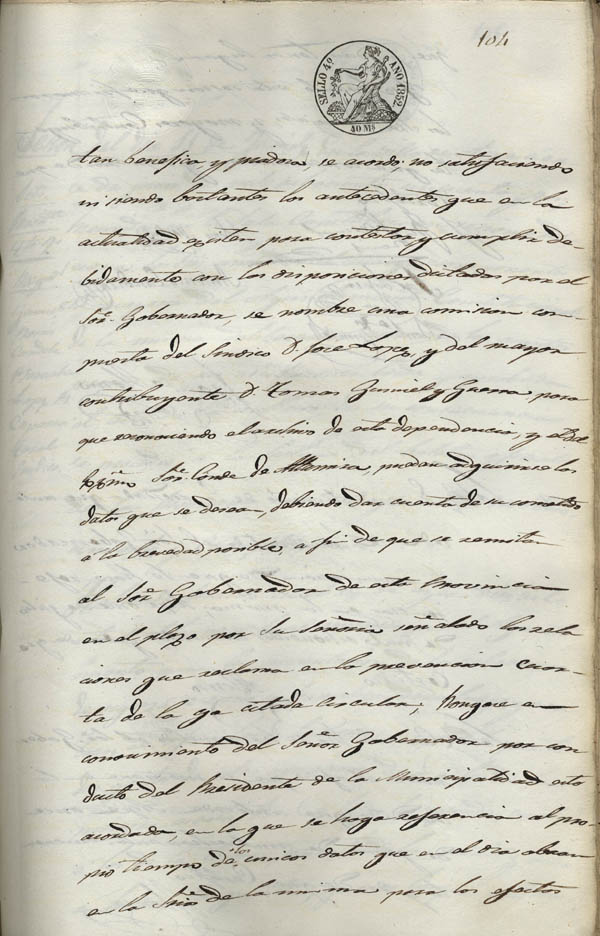 104
SELLO 4º AÑO 1852.
40 Ms
tan benefica y piadosa, se acordó; no satisfaciendo
ni siendo bastantes los antecedentes que en la
actualidad existen para contestar y cumplir de-
bidamente con las disposiciones dictadas por el
Sor. Gobernador, se nombre una comision com-
puesta del Sindico D. Jose Lopz, y del mayor
contribuyente D. Tomas Guerra para
que reconociendo el archivo de esta dependencia, y el del
Exmo Sor. Conde de Altamira, puedan adquirirse los
datos que se desean, debiendo dar cuenta de su cometido
á la brevedad posible, a fin de que se remitan
al Sor. Gobernador de esta Provincia
en el plazo por Su Señoria señalado las rela
ciones que reclama en la prevencion cuar-
ta de la ya citada circular; Pongase en
conocimiento del Señor Gobernador por con
ducto del Presidente de la Municipalidad esto
acordado, en la que se haga referencia al pro-
pio tiempo de los unicos datos que en el dia obran
en la Sria de la misma para los efectos